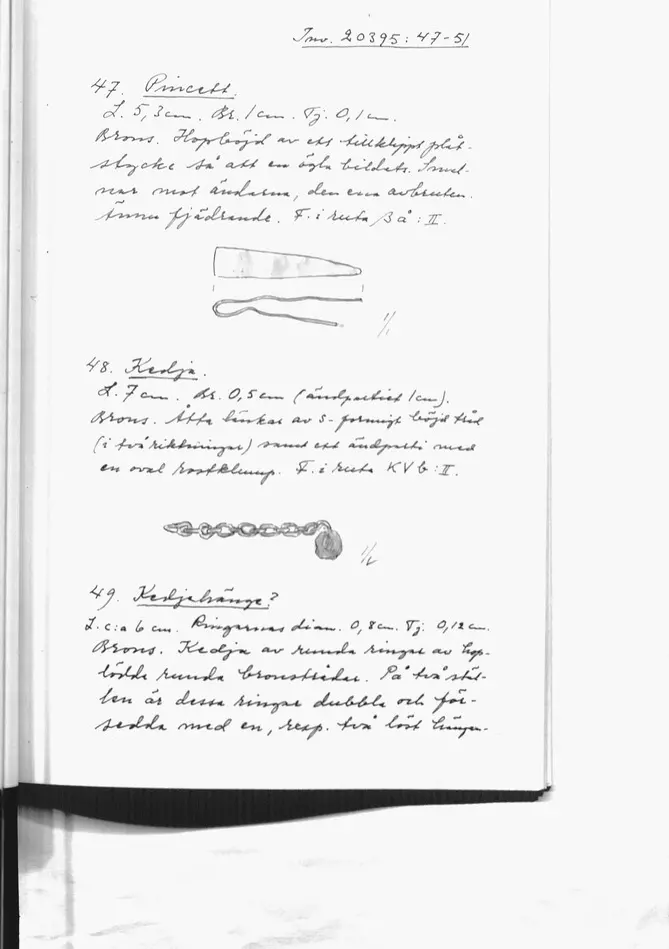 Inv. 20395:47-51
47. Pincett.
L. 5,3 cm. Br. 1 cm. Tj. 0,1 cm.
Brons. Hopböjd av ett tillklippt plåt-
stycke så att en ögla bildats. Smal-
nar mot ändarna, den ena avbruten.
Ännu fjädrande. F. i ruta ßå:II.
1/1
48. Kedja.
L. 7 cm. Br. 0,5 cm (ändpartiet 1 cm).
Brons. Åtta länkar av s-formigt böjd tråd
(i två riktningar) samt ett ändparti med
en oval rostklump. F. i ruta KVb:II.
1/2
49. Kedjehänge?
L. c:a 6 cm. Ringarnas diam. 0,8 cm. Tj. 0,12 cm.
Brons. Kedja av runda ringar av hop-
lödda runda bronstrådar. På två stäl-
len är dessa ringar dubbla och för-
sedda med en, resp. två löst hängan-